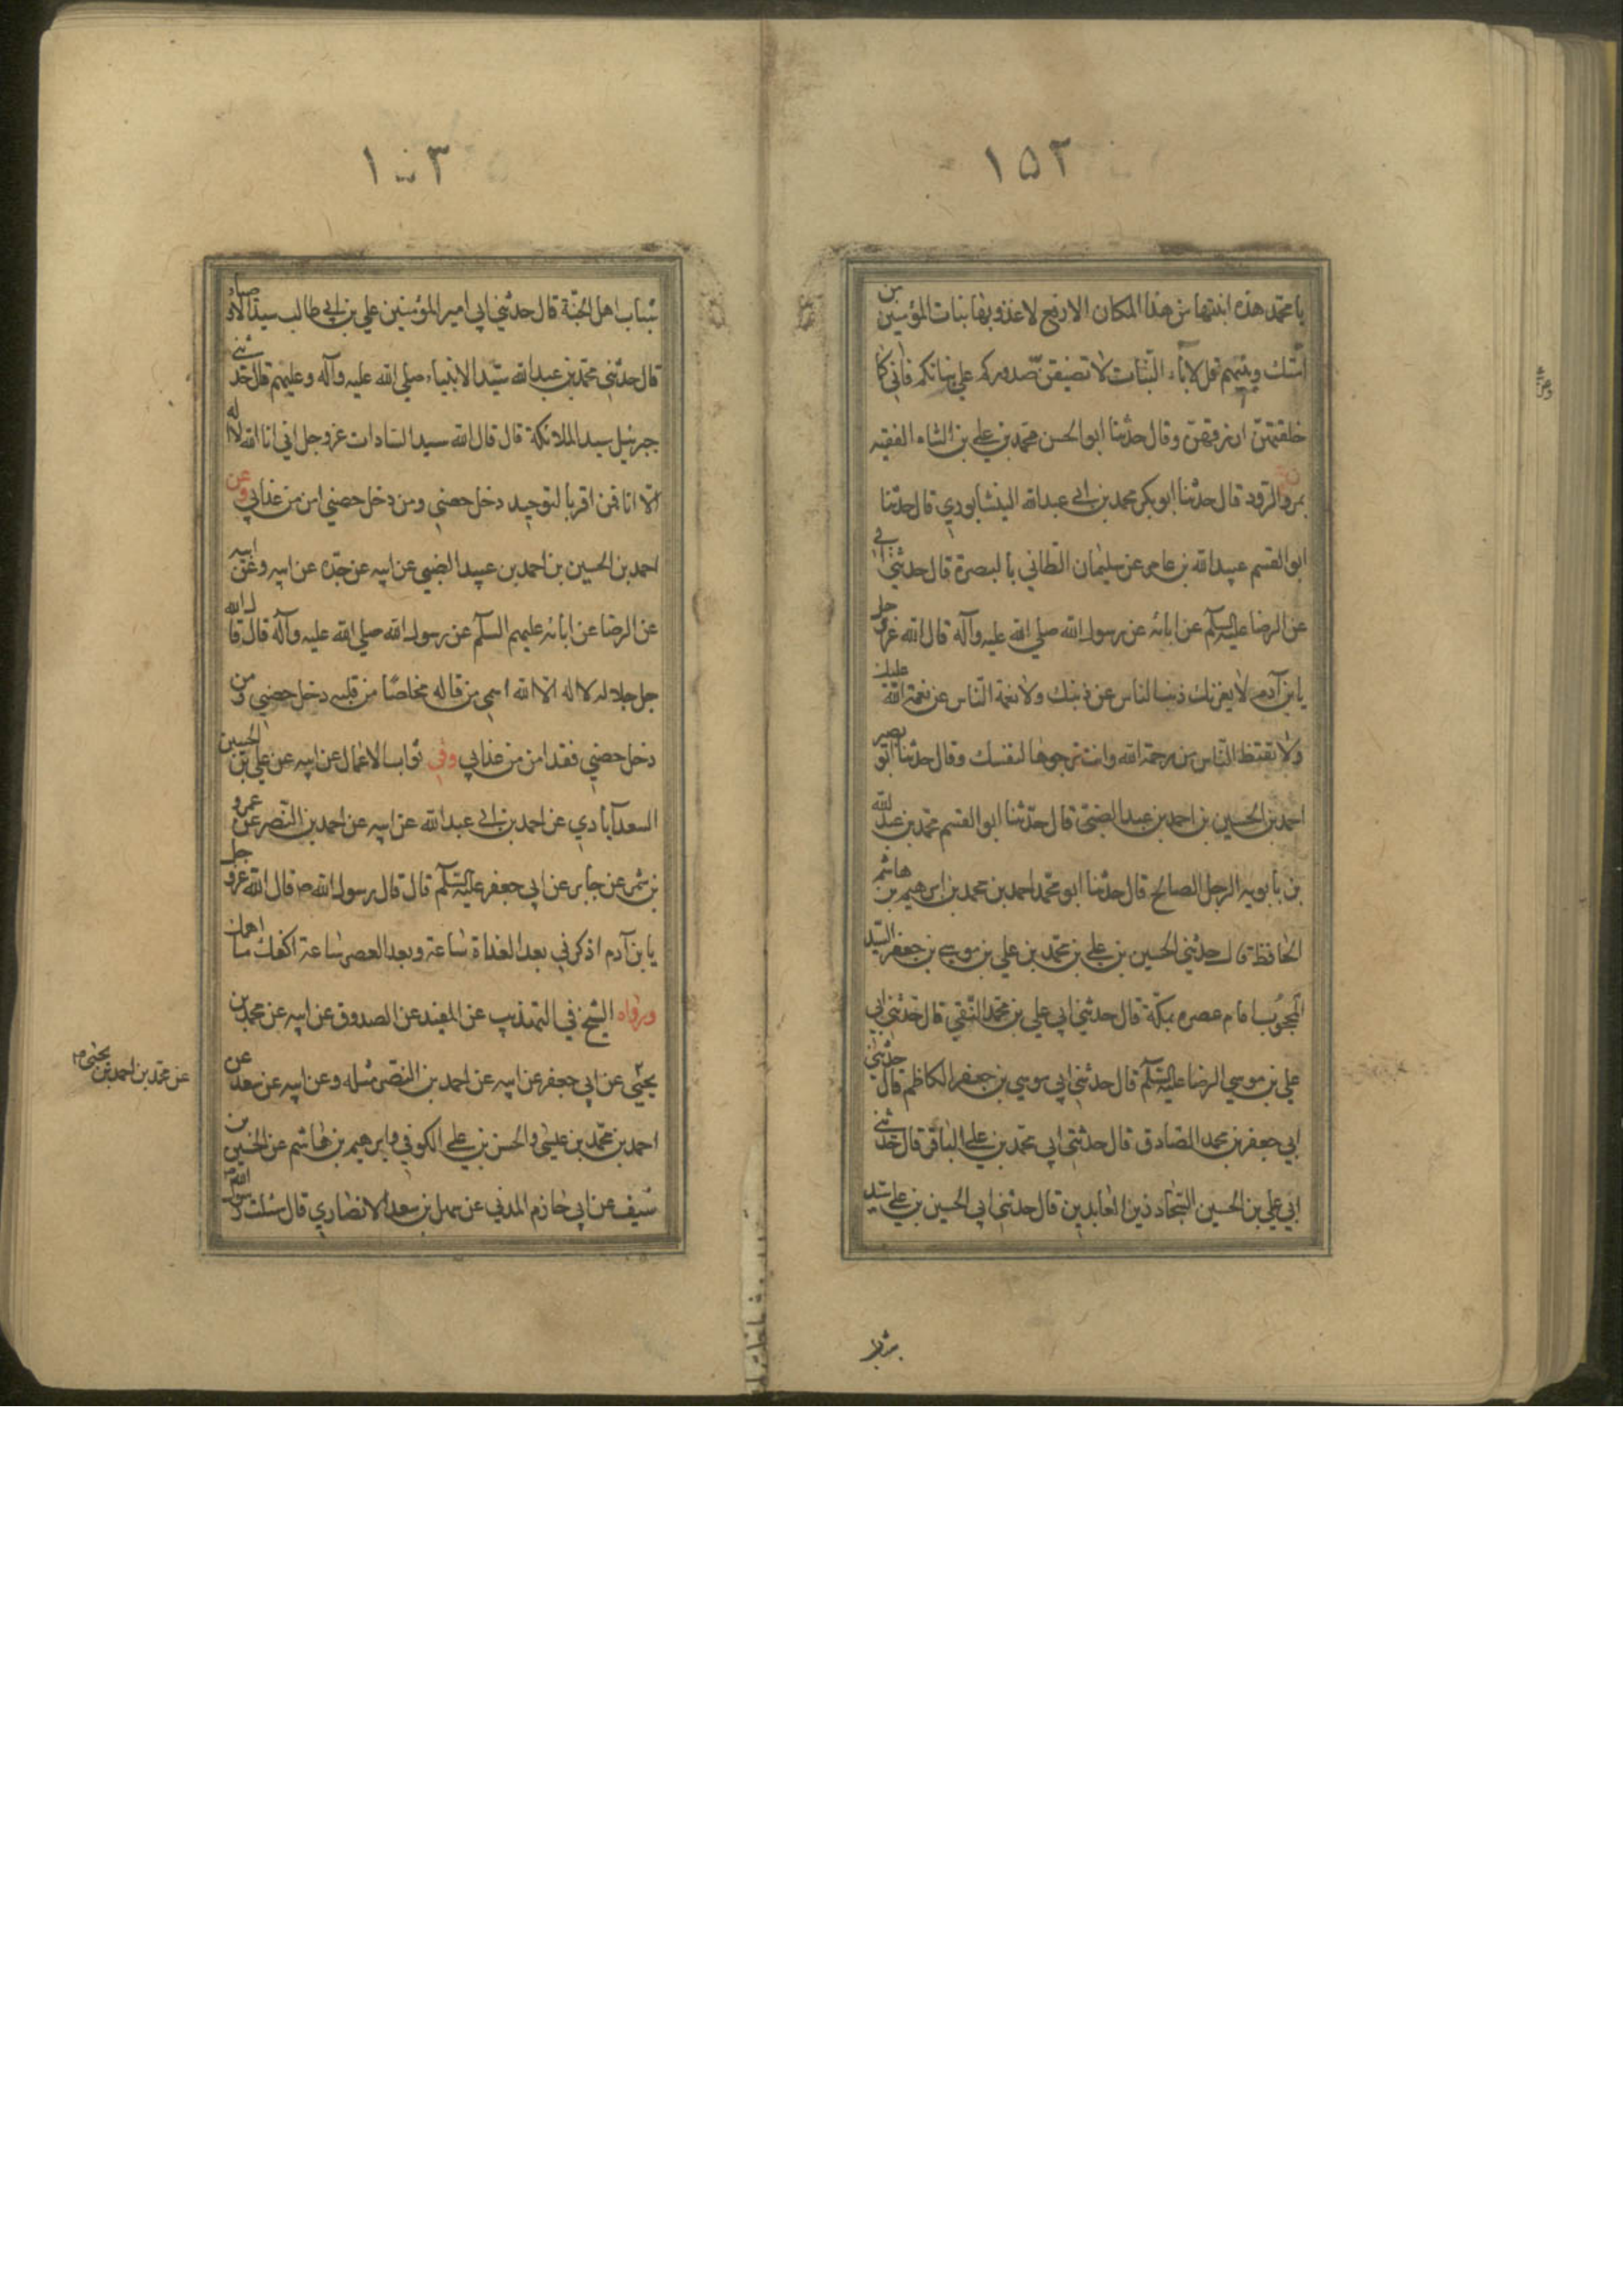 ١٥٢
يا محمد هذه ابنتها من هذا المكان الارفع لاغذو بها بنات المؤمنين من
امتك وبنيهم قل لاباء البنات لا تضيقن صدوركم علي بناتكم فاني كما
خلقتهن ارزقهن وقال حدثنا ابوالحسن محمد بن علي بن الشاه الفقيه
بمروالرود قال حدثنا ابوبكر محمد بن ابي عبدالله النيشابوري قال حدثنا
ابوالقسم عبيدالله بن عامر عن سليمان الطائي بالبصرة قال حدثني ابي
عن الرضا عليه السلم عن ابائه عن رسول الله صلي الله عليه وآله قال الله عز وجل
يا بن آدم لا يغرنك ذنب الناس عن ذنبك ولا نعمة الناس عن نعمة الله عليك
ولا تقنط الناس من رحمة الله وانت ترجوها لنفسك وقال حدثنا ابو نصير
احمد بن الحسين بن احمد بن عبيد الضبي قال حدثنا ابوالقسم محمد بن عبيد الله
بن بابويه الرجل الصالح قال حدثنا ابو محمد احمد بن محمد بن ابرهيم بن هاشم
الحافظ قال حدثني الحسين بن علي بن محمد بن علي بن موسي بن جعفر السيد
المحجوب امام عصره بمكة قال حدثني ابي علي بن محمد النقي قال حدثني ابي
علي بن موسي الرضا عليه السلم قال حدثني ابي موسي بن جعفر الكاظم قال حدثني
ابي جعفر بن محمد الصادق قال حدثني ابي محمد بن علي الباقر قال حدثني
ابي علي بن الحسين السجاد زين العابدين قال حدثني ابي الحسين بن علي سيد
١٥٣
شباب اهل الجنة قال حدثني ابي امير المؤمنين علي بن ابي طالب سيد الاوصياء
قال حدثني محمد بن عبدالله سيد الانبياء صلي الله عليه وآله وعليهم قال حدثني
جبرئيل سيد الملائكة قال قال الله سيد السادات عز وجل اني انا الله لا اله
الا انا فمن اقر بالتوحيد دخل حصني ومن دخل حصني امن من عذابي وعن
احمد بن الحسين بن احمد بن عبيد الضبي عن ابيه عن جده عن ابيه وعن ابيه
عن الرضا عن ابائه عليهم السلم عن رسول الله صلي الله عليه وآله قال قال الله
جل جلاله لا اله الا الله اسمي من قاله مخلصا من قلبه دخل حصني ومن
دخل حصني فقد امن من عذابي وفي ثواب الاعمال عن ابيه عن علي بن الحسين
السعدآبادي عن احمد بن ابي عبدالله عن ابيه عن احمد بن النضر عن عمرو
بن شمر عن جابر عن ابي جعفر عليه السلم قال قال رسول الله ص قال الله عز وجل
يا بن آدم اذكرني بعد الغداة ساعة وبعد العصر ساعة اكفك ما اهمك
ورواه الشيخ في التهذيب عن المفيد عن الصدوق عن ابيه عن محمد بن
عن محمد بن احمد بن يحيى
يحيي عن ابي جعفر عن ابيه عن احمد بن النضر مثله وعن ابيه عن سعد عن
احمد بن محمد بن عيسي والحسن بن علي الكوفي وابرهيم بن هاشم عن الحسين بن
سيف عن ابي حازم المدني عن سهل بن سعد الانصاري قال سئلت رسول الله